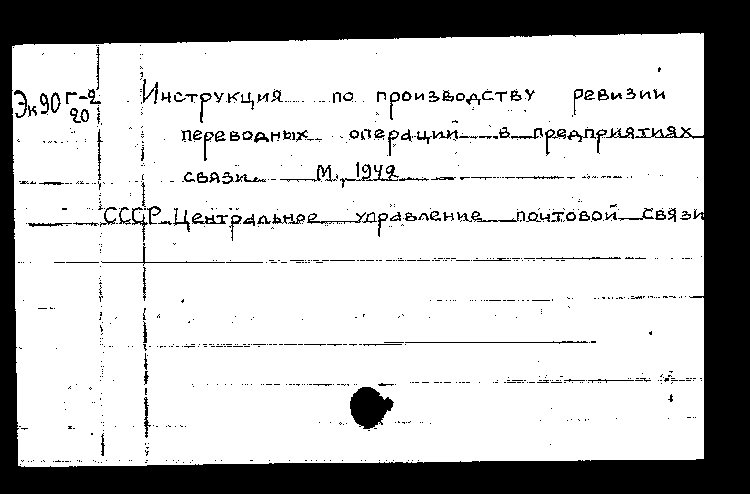 Эк90 Г-2 Инструкция по производству ревизии
20
переводных операций в предприятиях
связи. М., 1942
СССР. Центральное управление почтовой связи